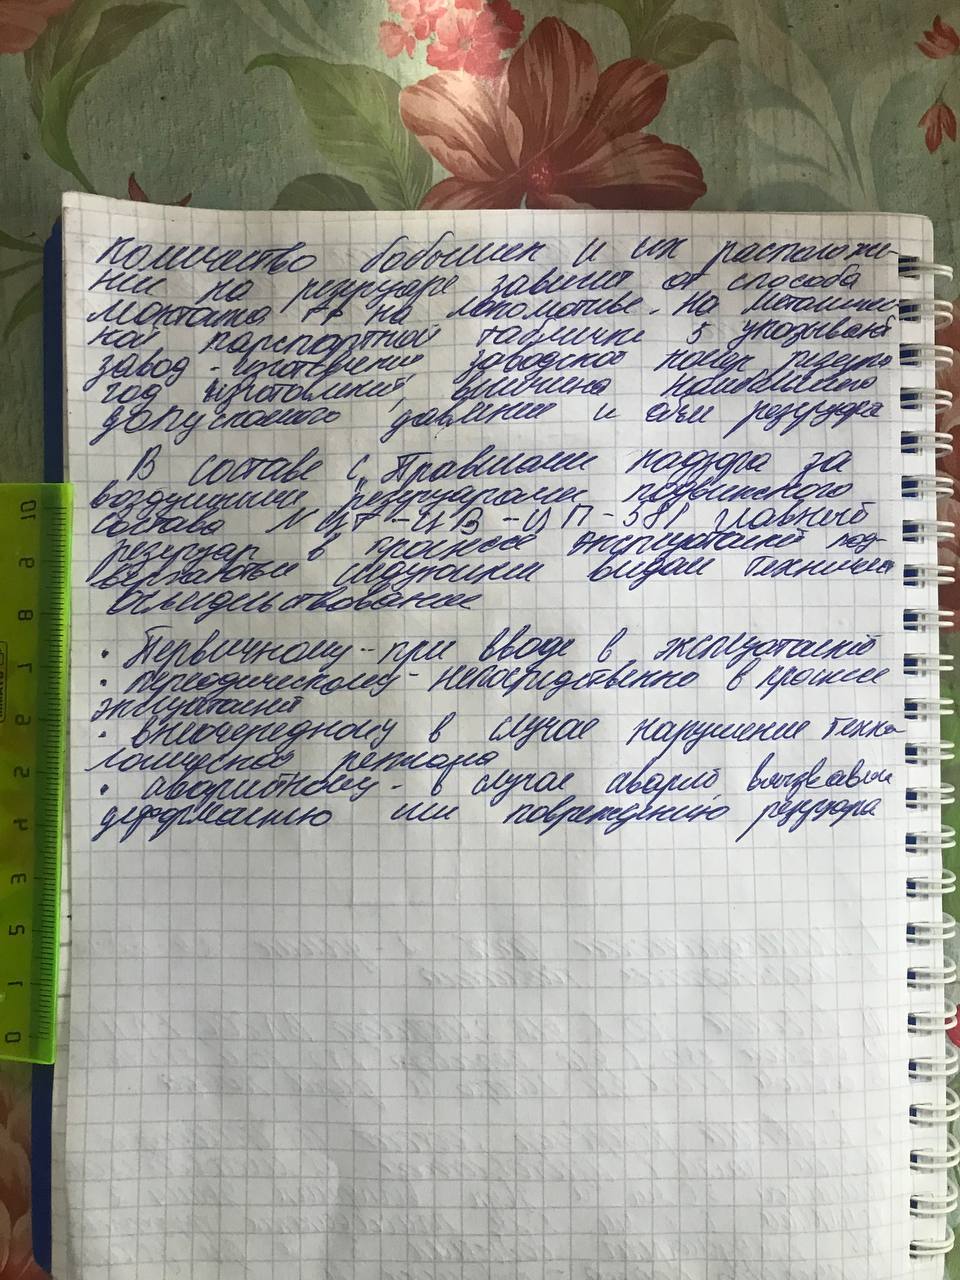 Количество бобышек и их расположе-
ние на резервуаре зависит от способа
монтажа ГР на локомотиве. На металличес
кой паспортной табличке 5 указывают
завод-изготовитель заводской номер
год изготовления, величина наибольшего
допускаемого давления и объём резервуара
В составе с "Правилами надзора за
воздушными резервуарами подвижного
состава № ЦТ-ЦВ-ЦП-581 главный
резервуар в процессе эксплуатации под-
вергаться следующим видам технич
освидетельствования
• Первичному - при вводе в эксплуатацию
• периодическому - непосредственно в процессе
эксплуатации
• внеочередному в случае нарушение техно
логического режима
• аварийному - в случае аварий, вызвавшей
деформацию или повреждению резервуара
10 9 8 7 6 5 4 3 2 1 0